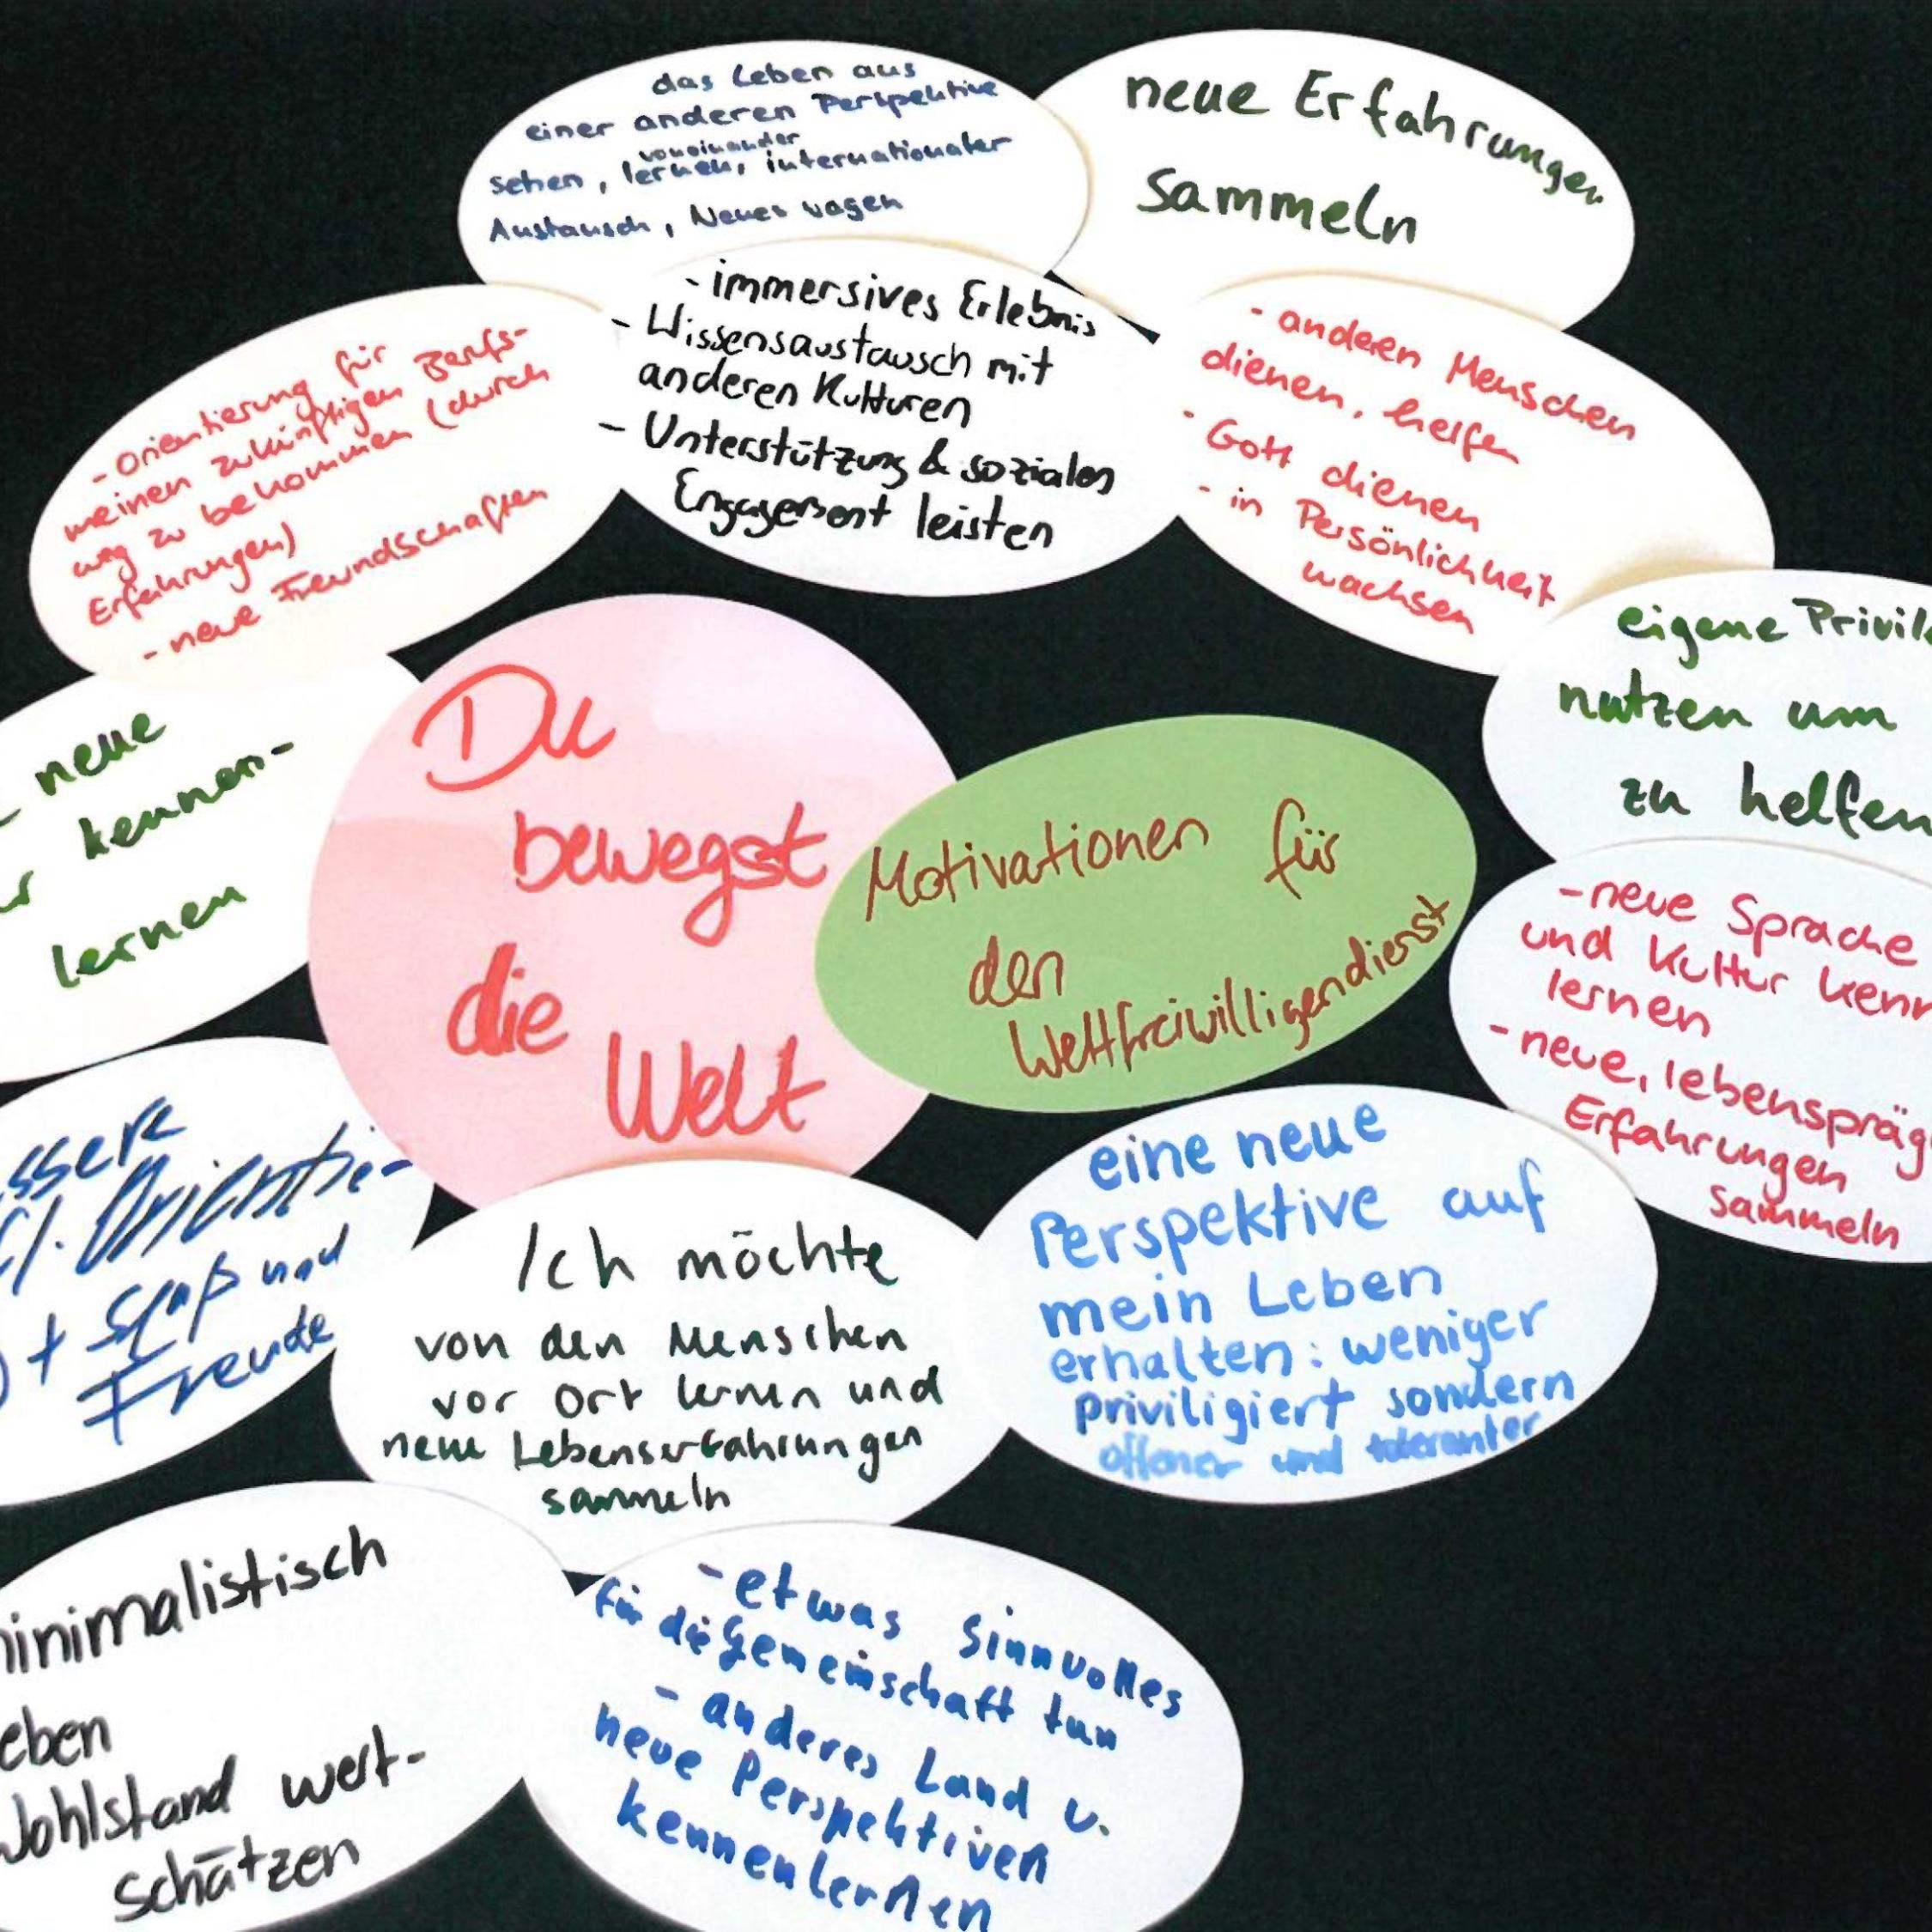 das Leben aus
einer anderen Perspektive
voneinander
sehen, lernen, internationaler
Austausch, Neues wagen
neue Erfahrungen
sammeln
- Orientierung für
meinen zukünftigen Berufs-
weg zu bekommen (durch
Erfahrungen)
- neue Freundschaften
- immersives Erlebnis
- Wissensaustausch mit
anderen Kulturen
- Unterstützung & soziales
Engagement leisten
- anderen Menschen
dienen, helfen
- Gott dienen
- in Persönlichkeit
wachsen
eigene Privil
nutzen um
zu helfen
neue
kennen-
lernen
Du
bewegst
die
Welt
Motivationen für
den
Weltfreiwilligendienst
- neue Sprache
und Kultur kenn
lernen
- neue, lebenspräg
Erfahrungen
sammeln
ssere
fl. Orientie-
) + Spaß und
Freude
Ich möchte
von den Menschen
vor Ort lernen und
neue Lebenserfahrungen
sammeln
eine neue
Perspektive auf
mein Leben
erhalten: weniger
priviligiert sondern
offener und toleranter
inimalistisch
eben
Wohlstand wert-
schätzen
- etwas Sinnvolles
für die Gemeinschaft tun
- anderes Land u.
neue Perspektiven
kennenlernen